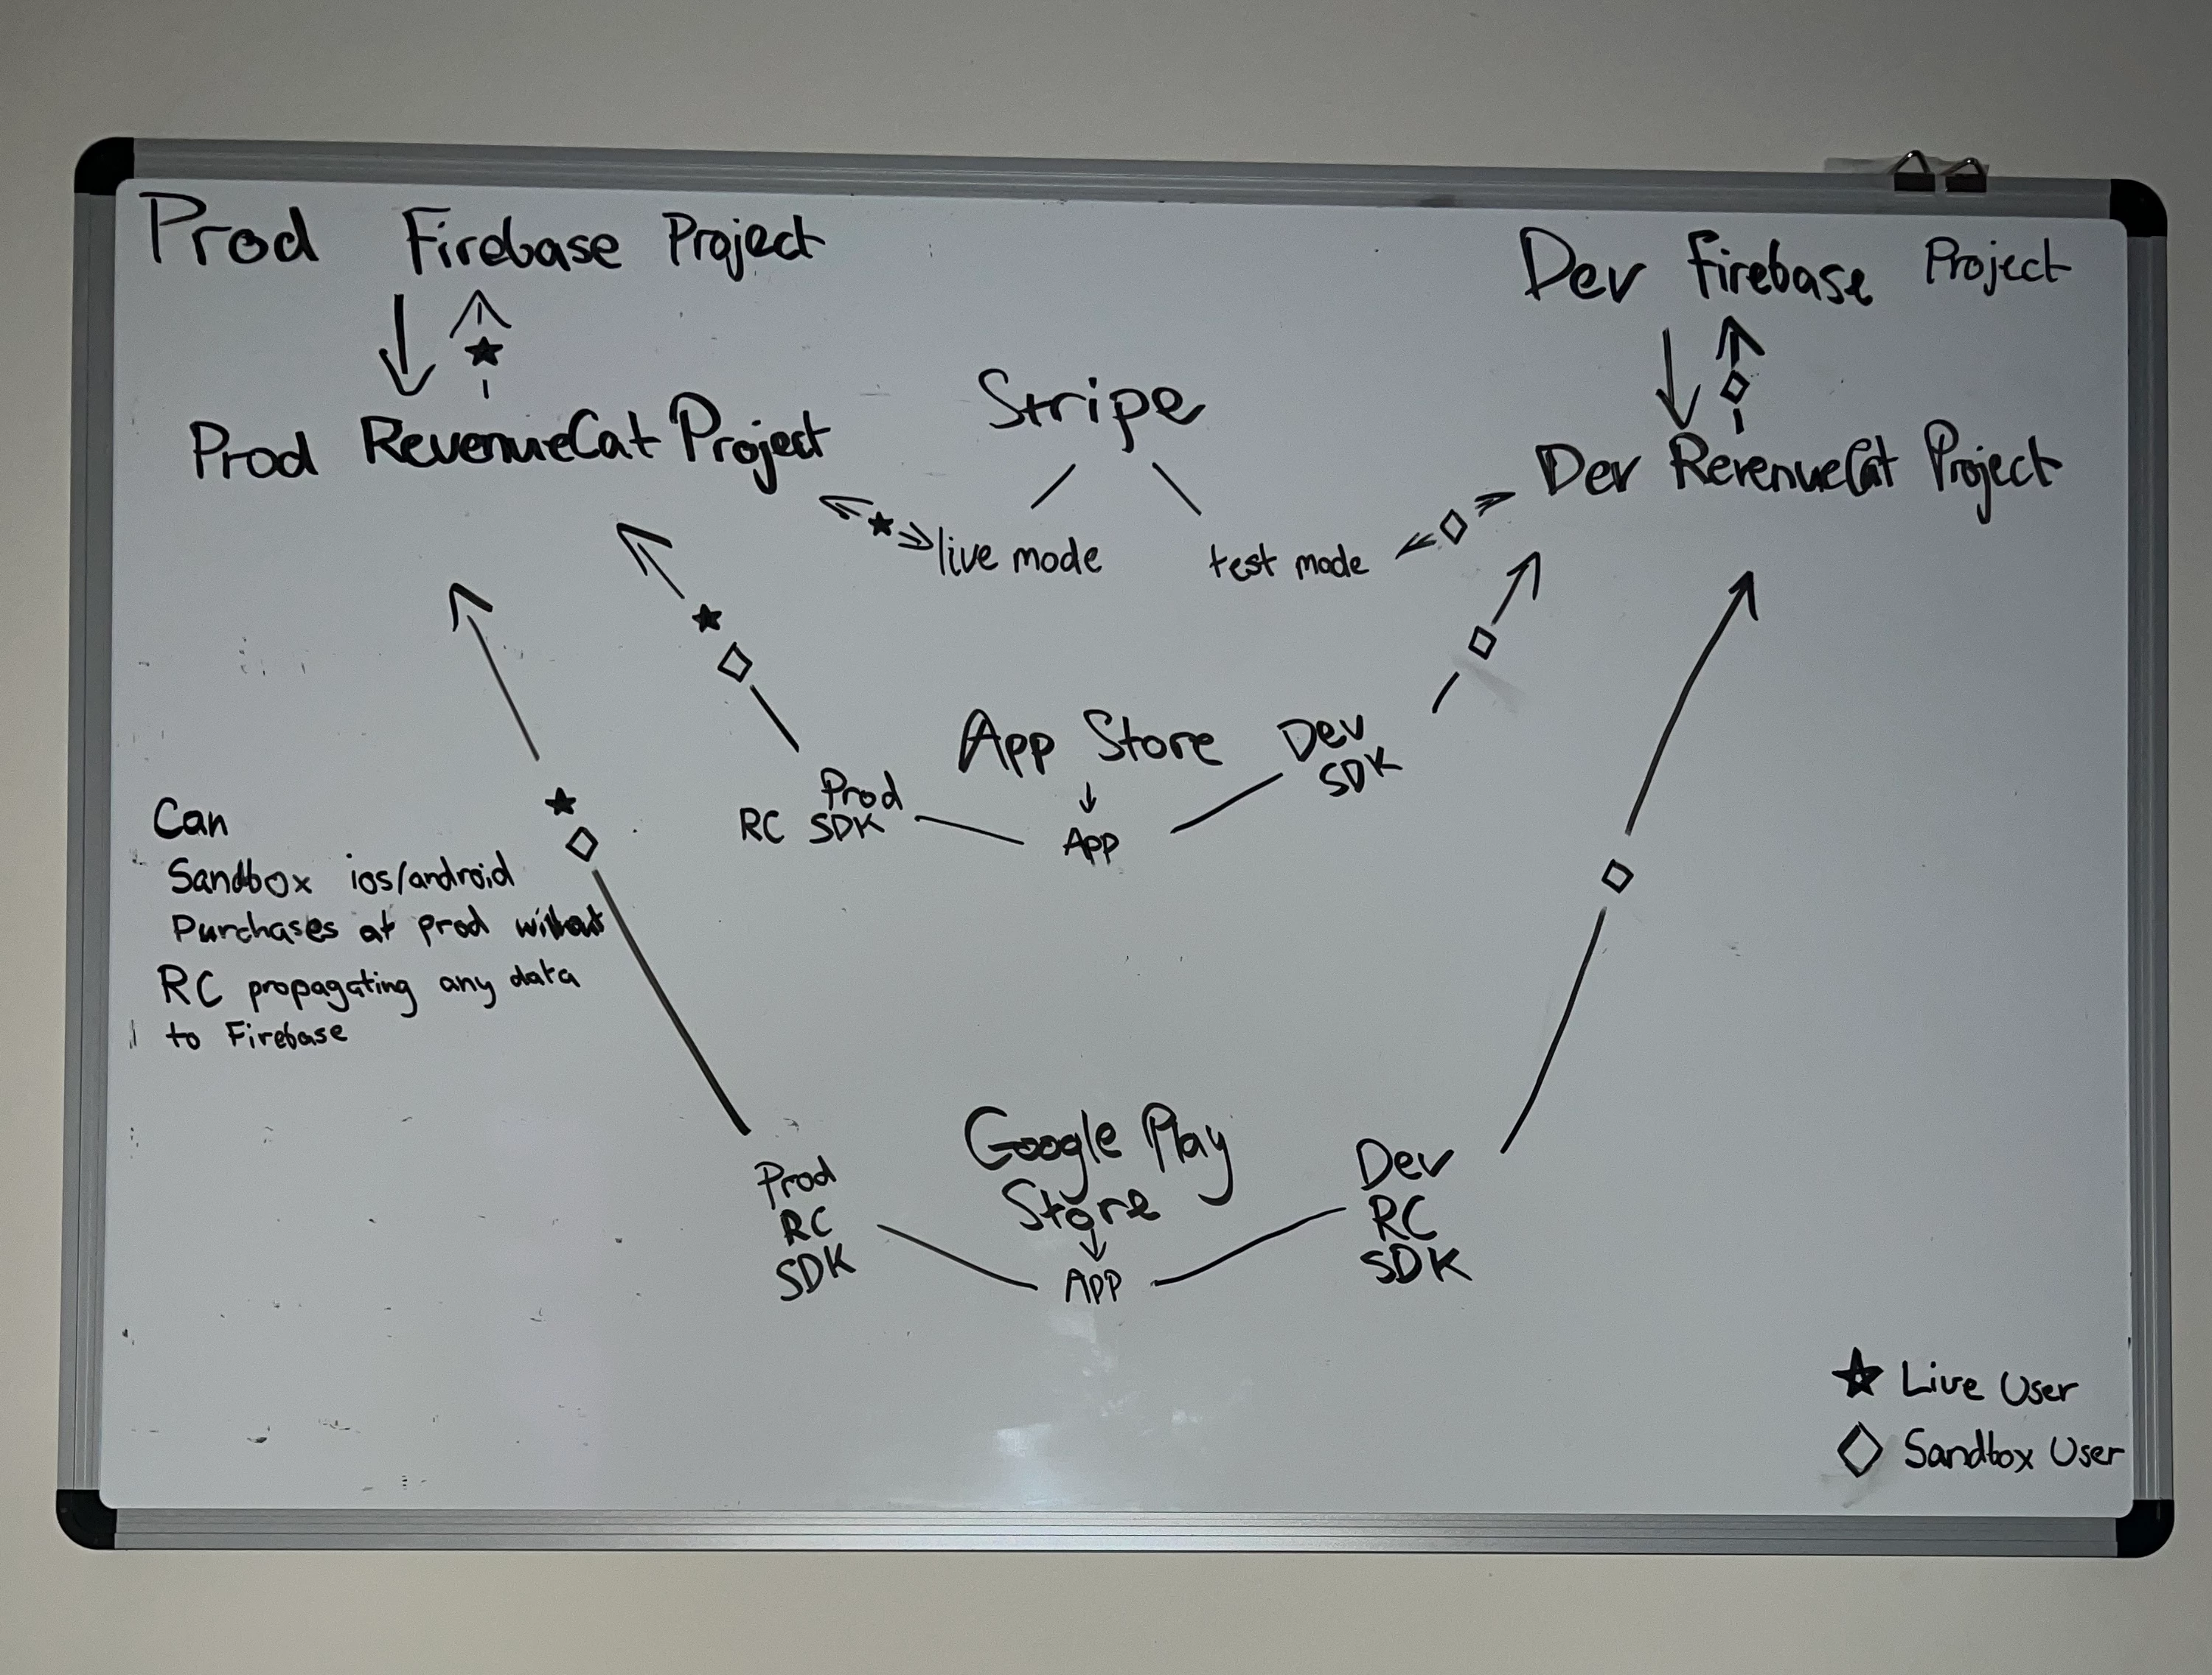 Prod Firebase Project
Dev Firebase Project
Prod RevenueCat Project
Stripe
Dev RevenueCat Project
live mode
test mode
App Store
Dev
SDK
Prod
RC SDK
App
Can
Sandbox ios/android
Purchases at prod without
RC propagating any data
to Firebase
Google Play
Store
Prod
RC
SDK
App
Dev
RC
SDK
Live User
Sandbox User